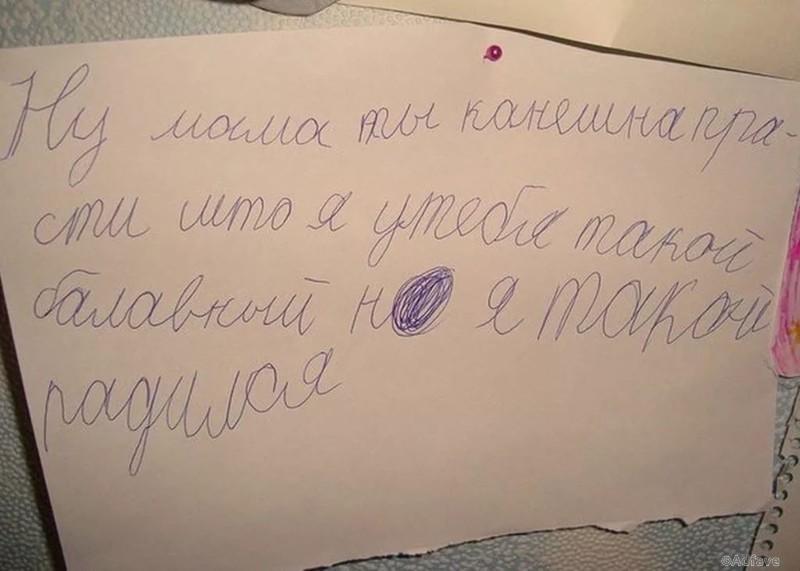 Ну мама ты канешна пра-
сти што я утебя такой
балавный но я такой
радился
©Aufave